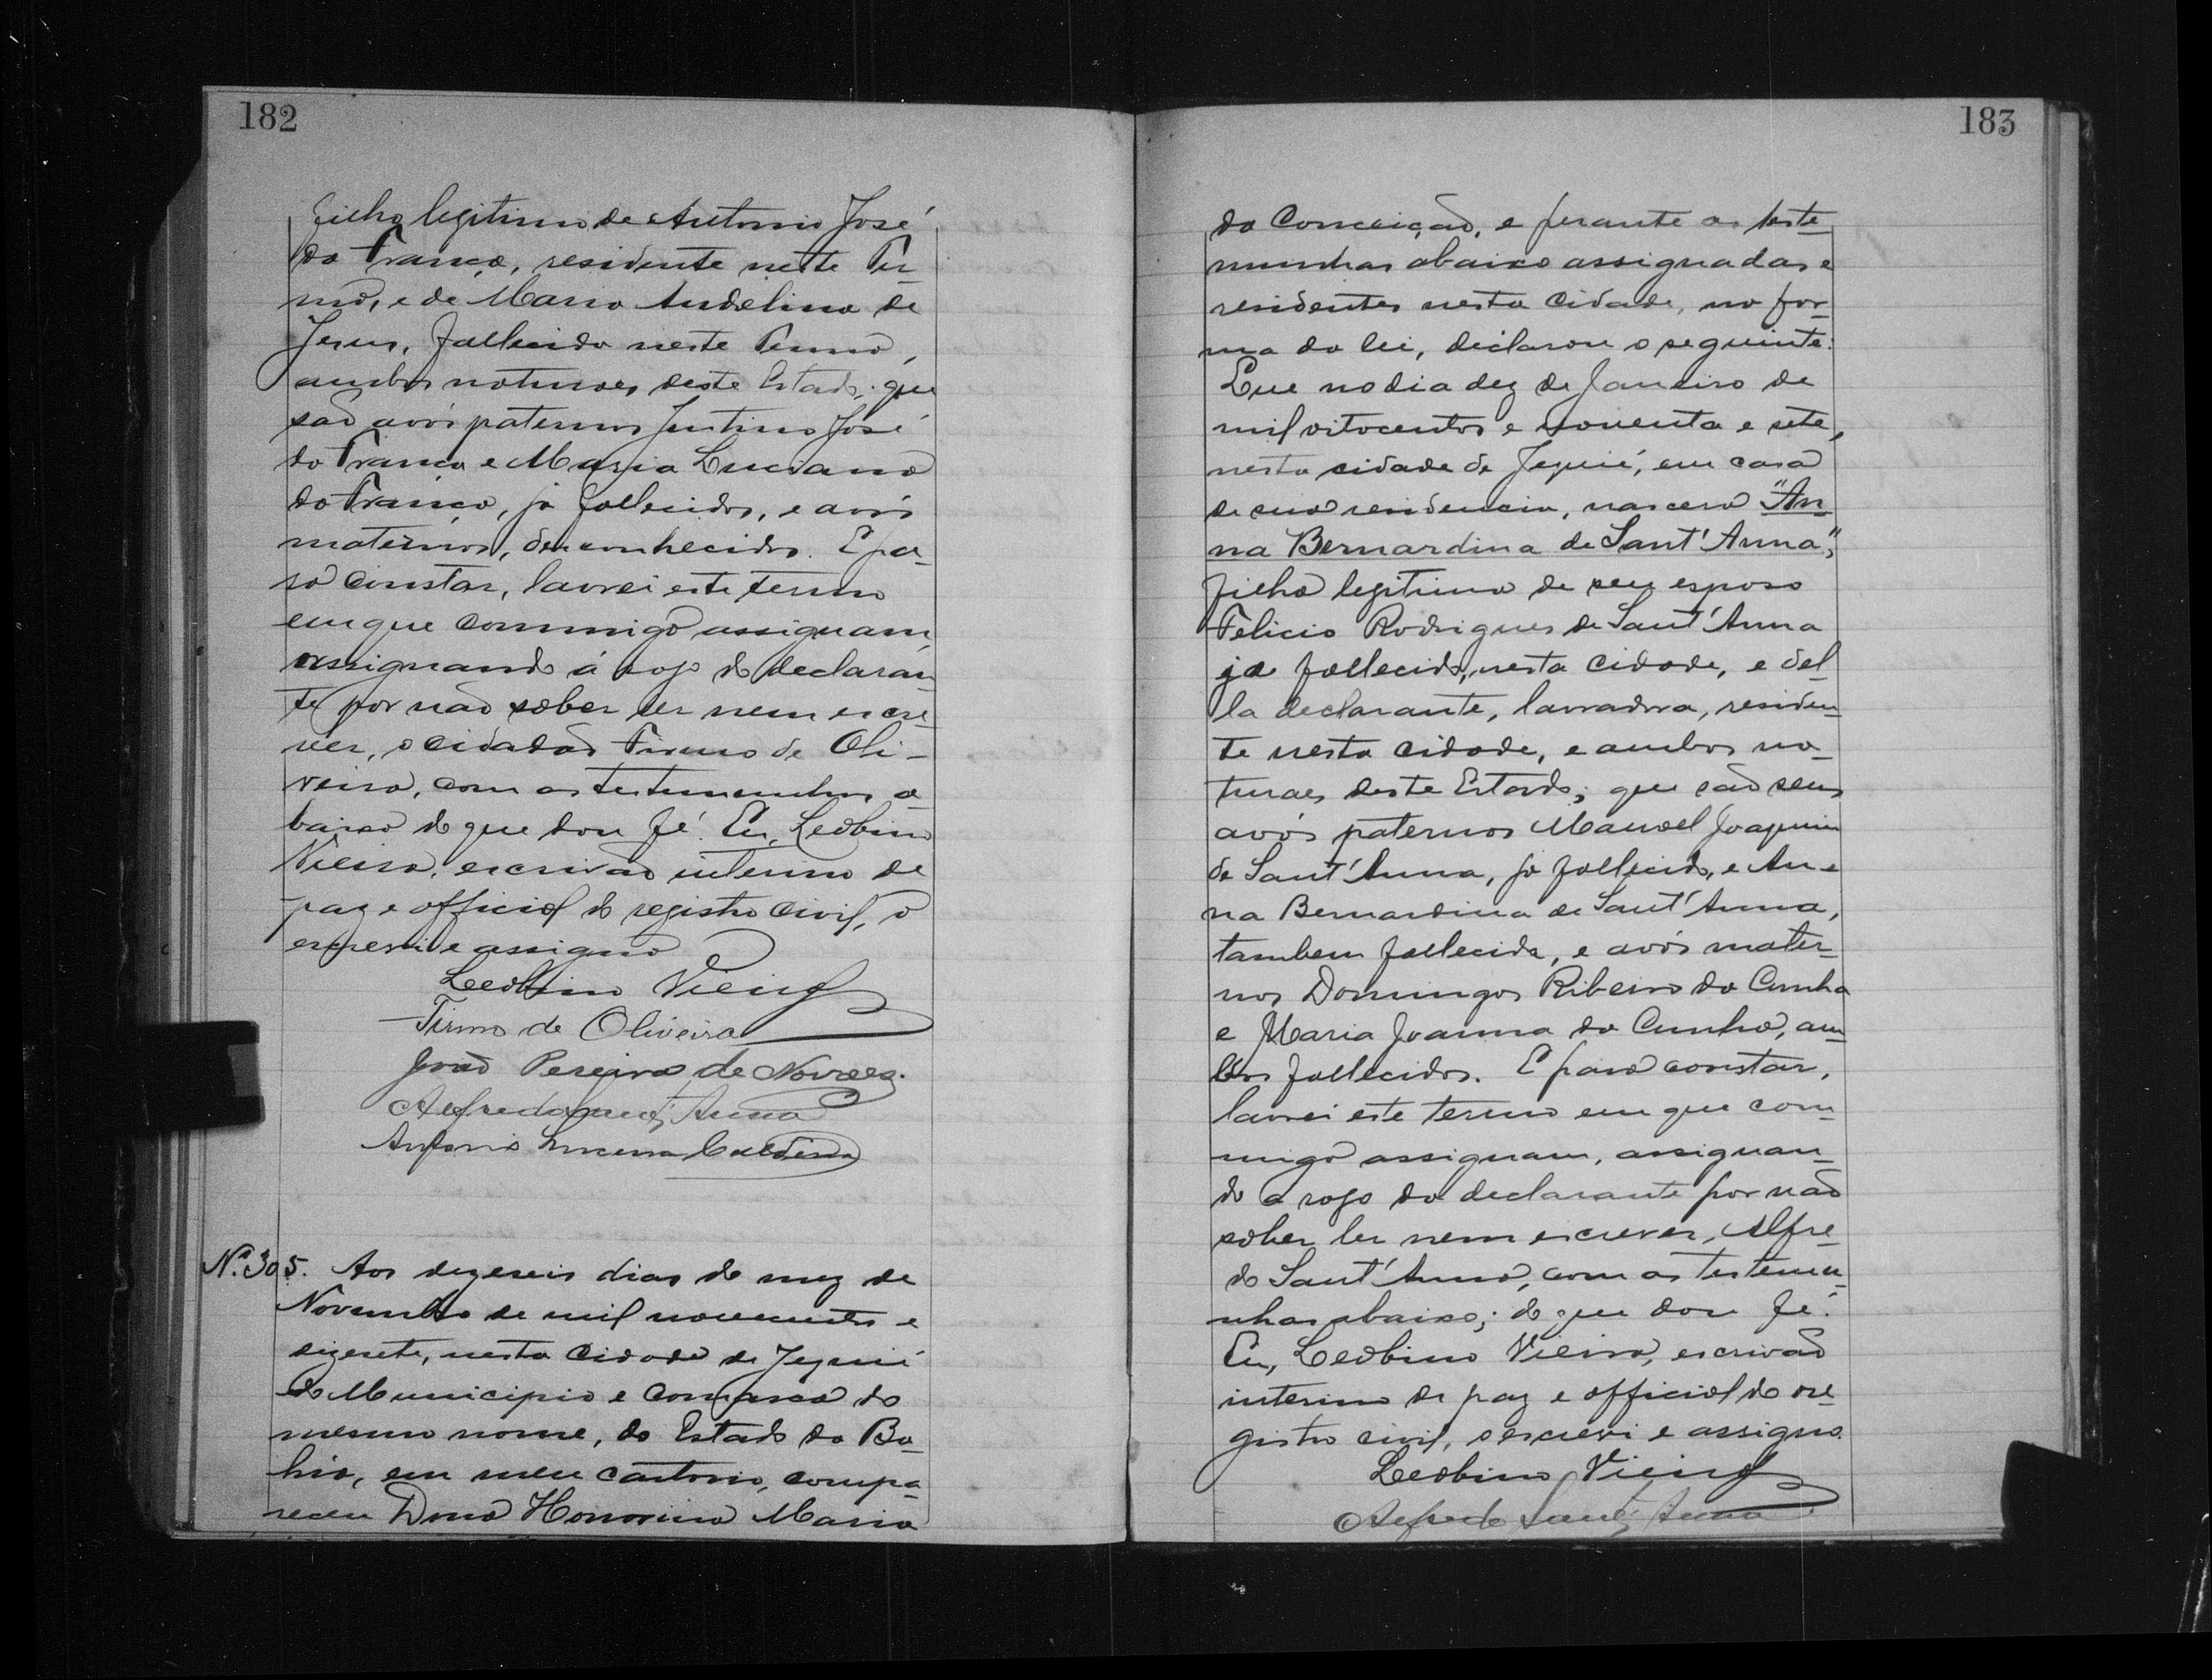 182
filha legitima de Antonio José
da França, residente neste Ter-
mo, e de Maria Andelina de
Jesus, fallecida neste Termo,
ambos naturaes deste Estado; que
são avós paternos Justino José
da França e Maria Luciana
da França, já fallecidos, e avós
maternos, desconhecidos. E pa-
ra constar, lavrei este termo
em que commigo assignam,
assignando á rogo do declaran-
te por não saber ler nem escre-
ver, o cidadão Firmo de Oli-
veira, com as testemunhas a-
baixo do que dou fé. Eu, Leobino
Vieira, escrivão interino de
paz e official do registro civil, o
escrevi e assigno
Leobino Vieira
Firmo de Oliveira
João Pereira de Novaes.
Alfredo Sant'Anna
Antonio Lucena Caldeira
Nº 305. Aos dezeseis dias do mez de
Novembro de mil novecentos e
dezesete, nesta Cidade de Jequié
do Municipio e Comarca do
mesmo nome, do Estado da Ba-
hia, em meu cartorio, compa-
receu Dona Honorina Maria
183
da Conceição, e perante as teste-
munhas abaixo assignadas e
residentes nesta cidade, na for-
ma da lei, declarou o seguinte:
Que no dia dez de Janeiro de
mil oitocentos e noventa e sete,
nesta cidade de Jequié, em casa
de sua residencia, nascera "An-
na Bernardina de Sant'Anna",
filha legitima de seu esposo
Felicio Rodrigues de Sant'Anna
já fallecido, nesta cidade, e del-
la declarante, lavradora, residen-
te nesta cidade, e ambos na-
turaes deste Estado; que são seus
avós paternos Manoel Joaquim
de Sant'Anna, já fallecido, e An-
na Bernardina de Sant'Anna,
tambem fallecida, e avós mater-
nos Domingos Ribeiro da Cunha
e Maria Joanna da Cunha, am-
bos fallecidos. E para constar,
lavrei este termo em que com-
migo assignam, assignan-
do a rogo da declarante por não
saber ler nem escrever, Alfre-
do Sant'Anna, com as testemu-
nhas abaixo; do que dou fé.
Eu, Leobino Vieira, escrivão
interino de paz e official do re-
gistro civil, o escrevi e assigno.
Leobino Vieira
Alfredo Sant'Anna